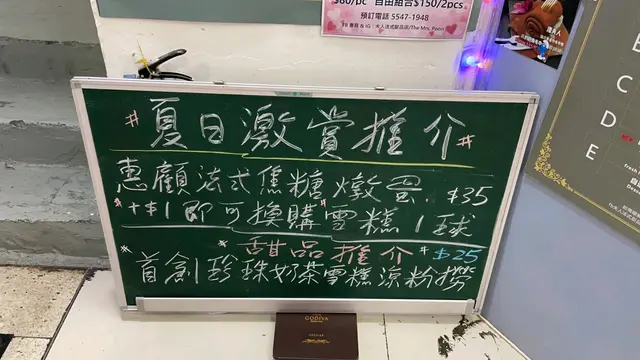 $80/pc 自由組合$150/2pcs
預訂電話 5547-1948
#夏日激賞推介#
惠顧法式焦糖燉蛋. $35
"+$1即可"換購"雪糕1球
*甜品推介* $25
首創珍珠奶茶雪糕涼粉撈
GODIVA
E
C
D
E